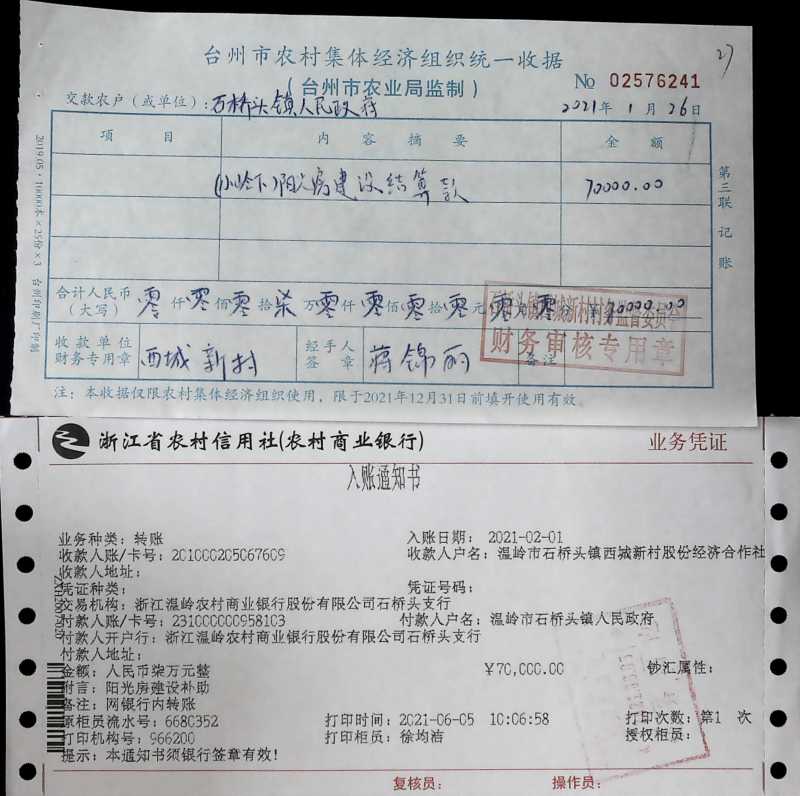 台州市农村集体经济组织统一收据
(台州市农业局监制)
№ 02576241
27
交款农户(或单位):石桥头镇人民政府
2021年1月26日
项目 内容摘要 金额
(小岭下)阳光房建设结算款 70000.00
合计人民币(大写) 零仟零佰零拾柒万零仟零佰零拾零元零角零分 ¥70000.00
收款单位财务专用章 西城新村 经手人签章 蒋锦丽 备注
石桥头镇西城新村村务监督委员会
财务审核专用章
注:本收据仅限农村集体经济组织使用,限于2021年12月31日前填开使用有效。
第三联 记账
2019.05·10000本×25份×3 台州印刷厂印制
浙江省农村信用社(农村商业银行)
业务凭证
入账通知书
业务种类:转账 入账日期: 2021-02-01
收款人账/卡号:201000205067609 收款人户名:温岭市石桥头镇西城新村股份经济合作社
收款人地址:
凭证种类: 凭证号码:
交易机构:浙江温岭农村商业银行股份有限公司石桥头支行
付款人账/卡号:231000000958103 付款人户名:温岭市石桥头镇人民政府
付款人开户行:浙江温岭农村商业银行股份有限公司石桥头支行
付款人地址:
金额:人民币柒万元整 ¥70,000.00 钞汇属性:
附言:阳光房建设补助
备注:网银行内转账
原柜员流水号:668C352 打印时间:2021-06-05 10:06:58 打印次数:第1 次
打印机构号:966200 打印柜员:徐均洁 授权柜员:
提示:本通知书须银行签章有效!
复核员: 操作员: